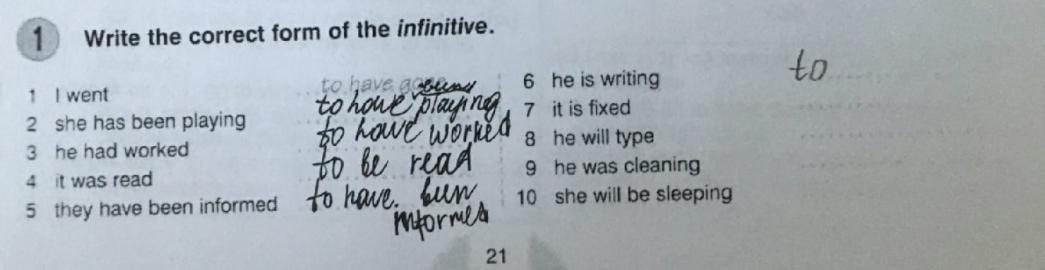 1 Write the correct form of the infinitive.
1 I went to have gone
2 she has been playing to have been playing
3 he had worked to have worked
4 it was read to be read
5 they have been informed to have. been
informed
6 he is writing
7 it is fixed
8 he will type
9 he was cleaning
10 she will be sleeping
to
21